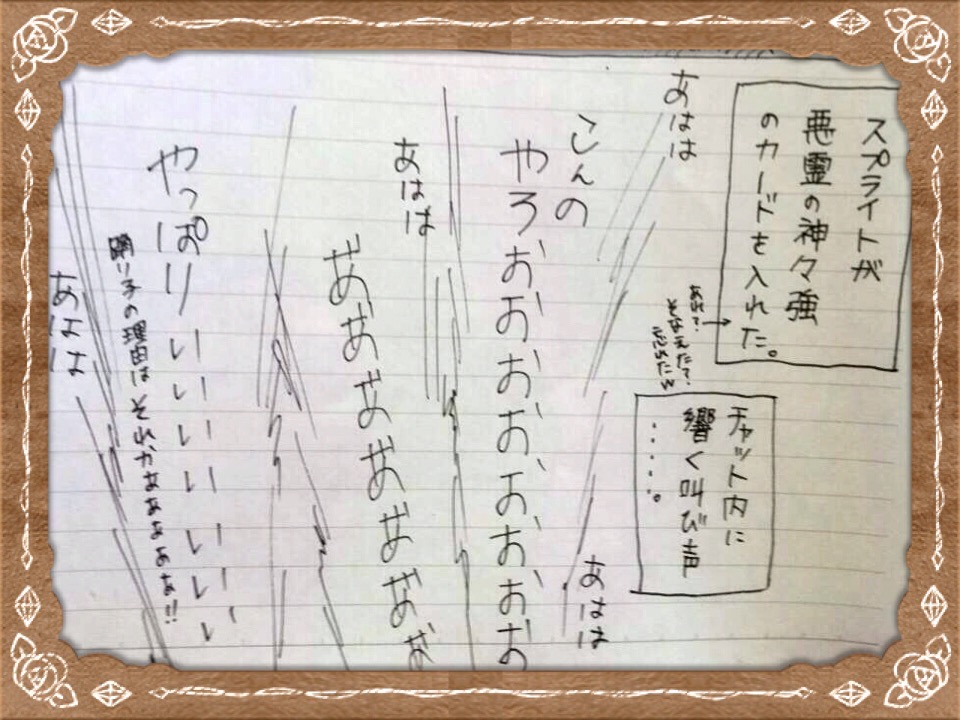 スプライトが
悪霊の神々強
のカードを入れた。
あれ?
そなえた?
忘れたw
チャット内に
響く叫び声
・・・・・。
あはは
あはは
こんの
やろおおおおおおおお
あはは
ああああああああ
やっぱりいいいいいい
踊り子の理由はそれかあああぁぁ!!
あはは